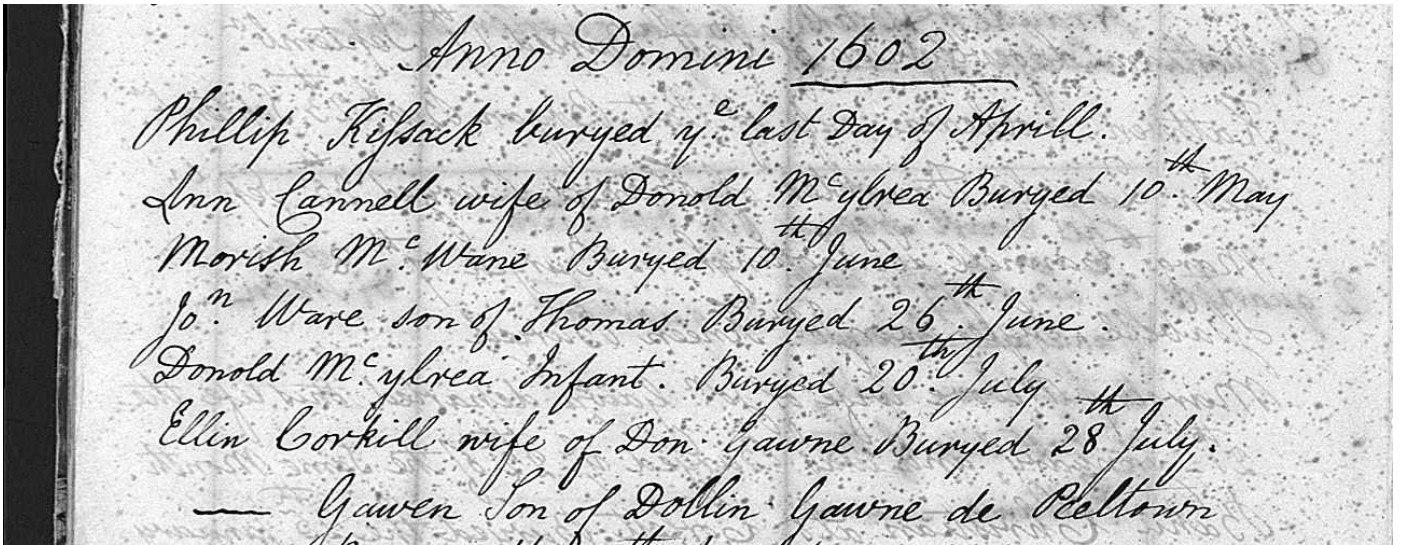 Anno Domini 1602
Phillip Kissack buryed yͤ. last Day of Aprill.
Ann Cannell wife of Donold Mᶜylrea Buryed 10ᵗʰ. May
Morish Mᶜ. Wane Buryed 10ᵗʰ. June
Joⁿ. Ware son of Thomas Buryed 26ᵗʰ. June.
Donold Mᶜ. ylrea Infant. Buryed 20ᵗʰ. July
Ellin Corkill wife of Don. Gawne Buryed 28ᵗʰ July.
— Gawen Son of Dollin Gawne de Peeltown